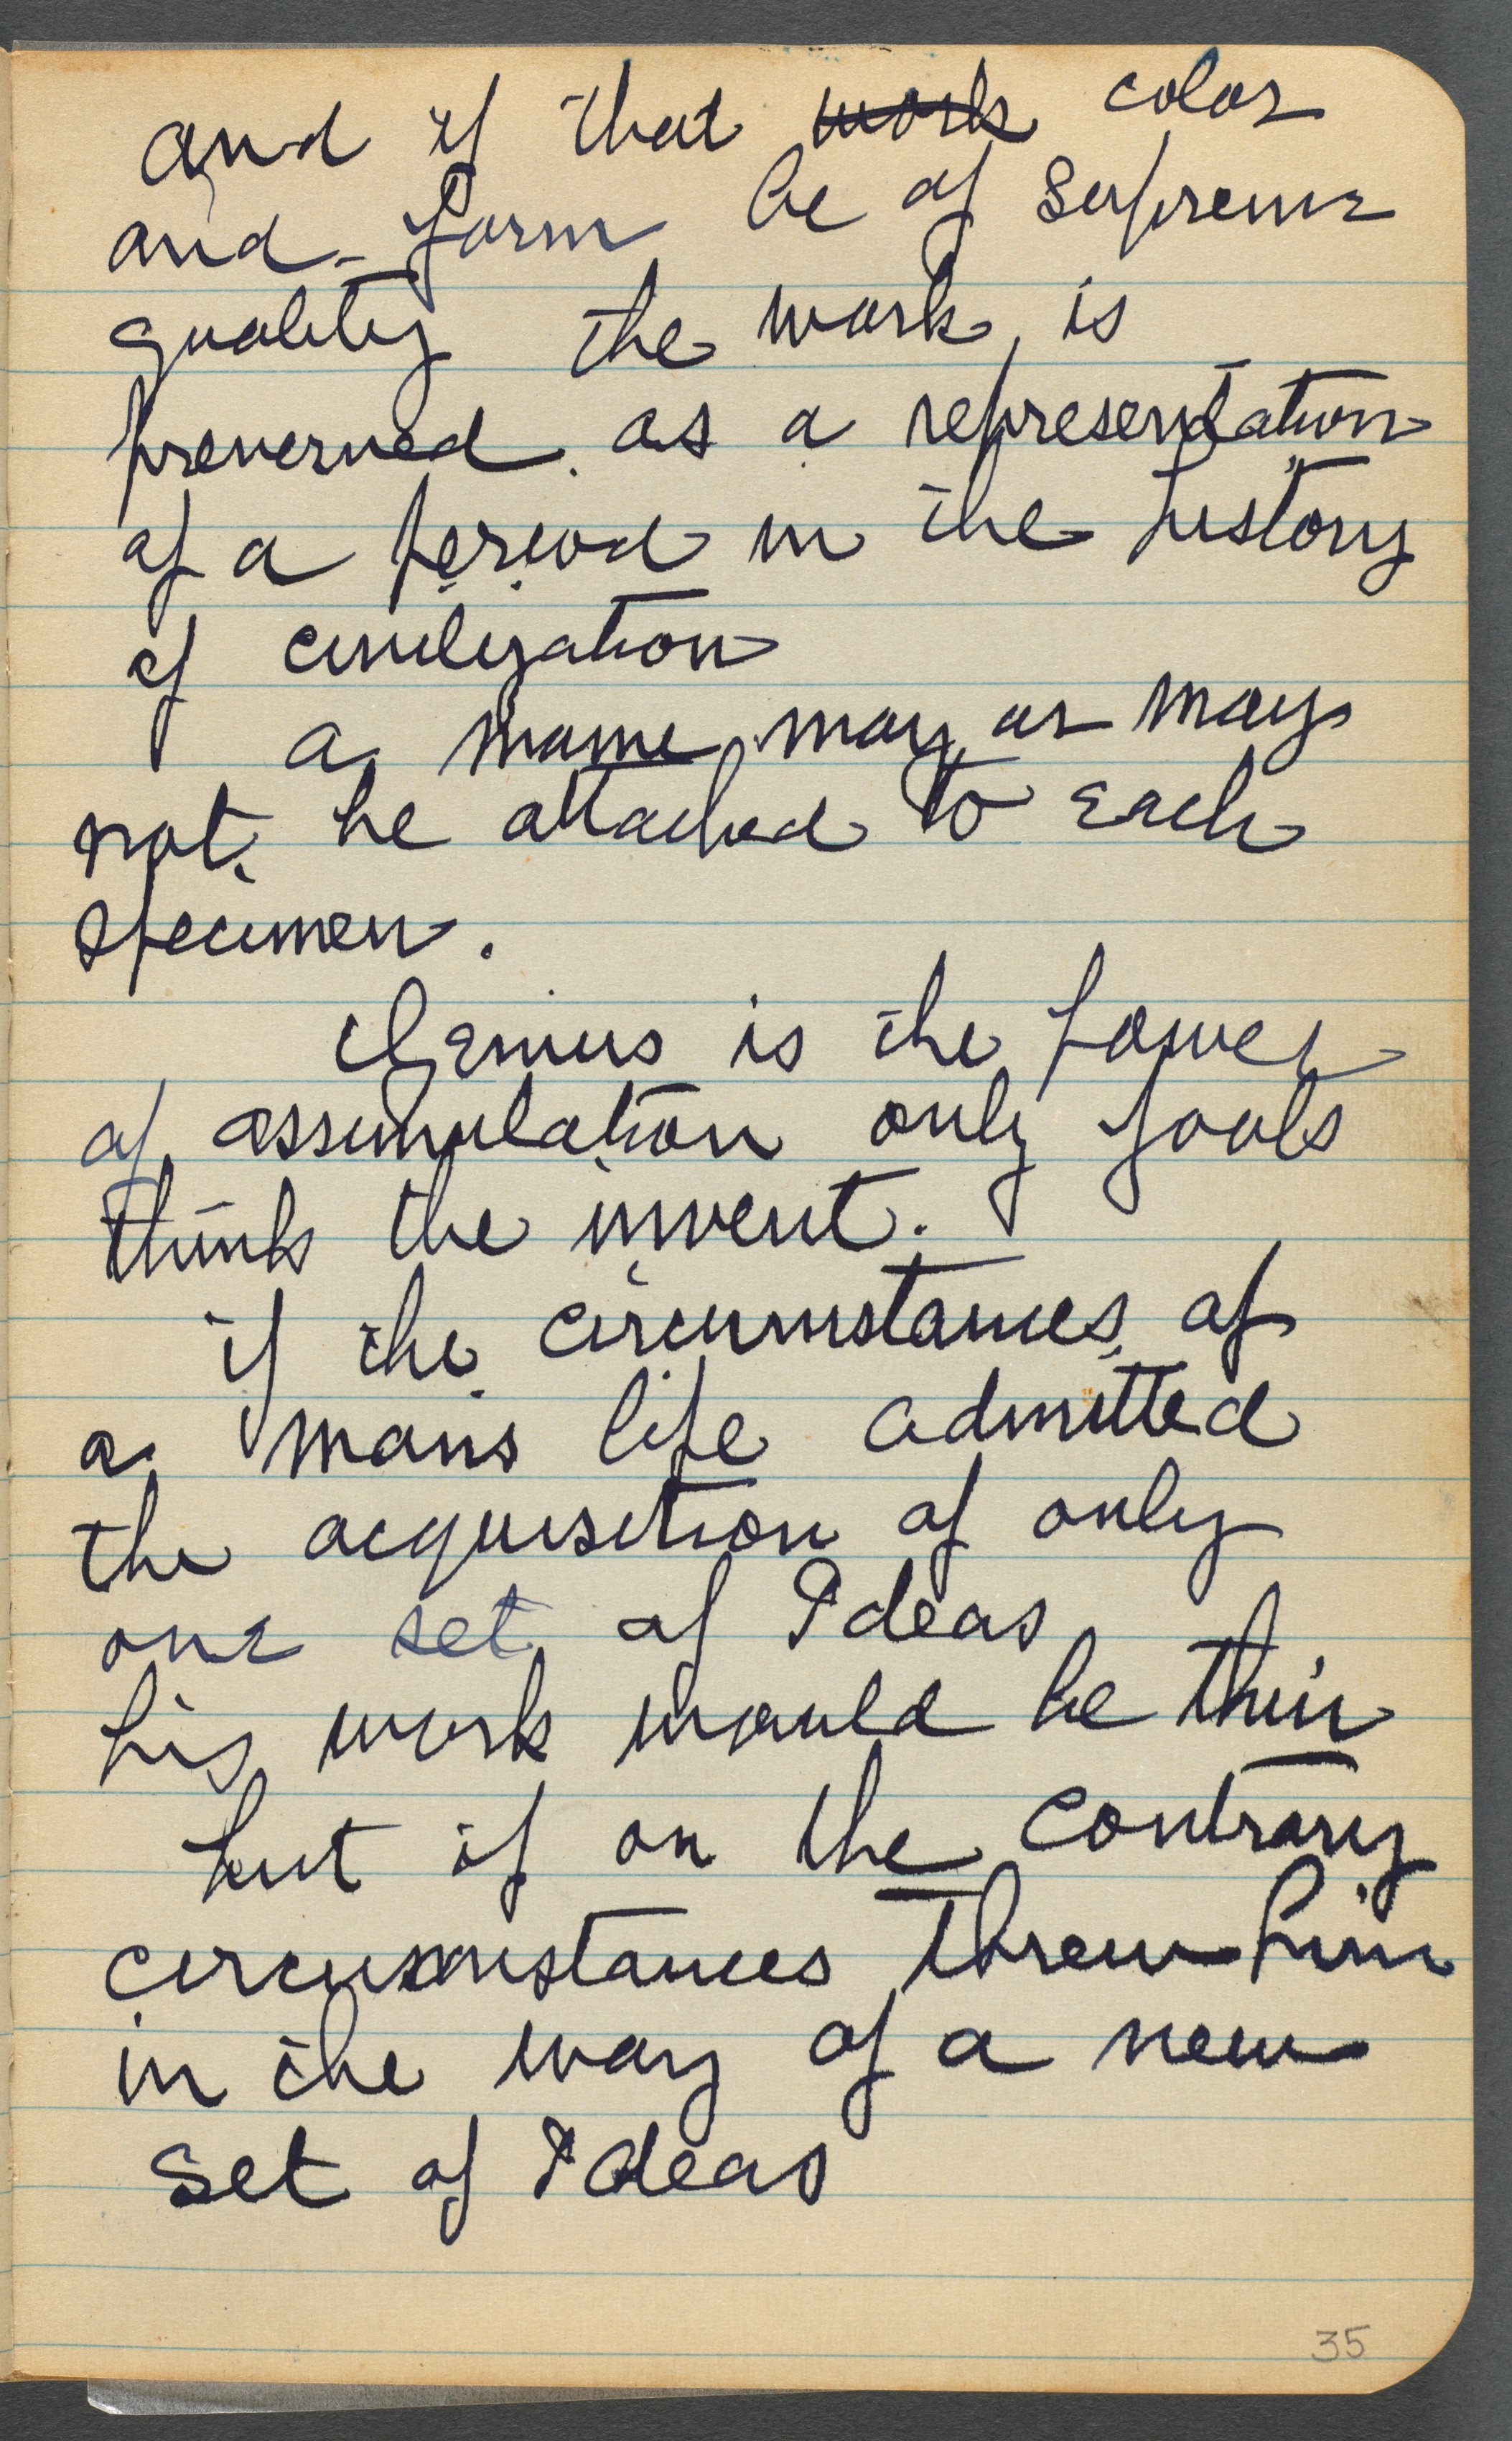 and if that work color
and form be of supreme
quality the work is
preverved as a representation
of a period in the history
of civilization
a name may or may
not be attached to each
specimen.
Genius is the power
of assimulation only fools
think the invent.
if the circumstances of
a mans life admitted
the acquisition of only
one set of Ideas
his work would be thin
but if on the contrary
circumstances threw him
in the way of a new
set of Ideas
35